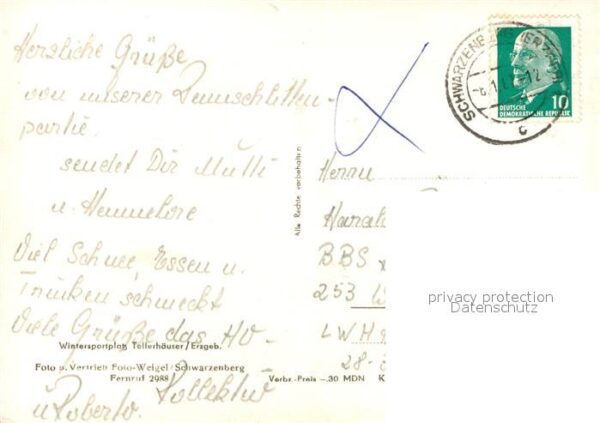 Herzliche Grüße
von unserer Dammschlitten-
partie
sendet Dir Mutti
u. Hannelore
Viel Schnee, Essen u.
Trinken schmeckt
Viele Grüße das HO-
Kollektiv
u. Roberto.
Wintersportplatz Tellerhäuser/Erzgeb.
Foto u. Vertrieb Foto-Weigel/Schwarzenberg
Fernruf 2988
Verbr.-Preis —.30 MDN K
Alle Rechte vorbehalten
SCHWARZENBERG (ERZGEB)
c
10
DEUTSCHE
DEMOKRATISCHE REPUBLIK
Herrn
BBS
253
LWH
28-
privacy protection
Datenschutz